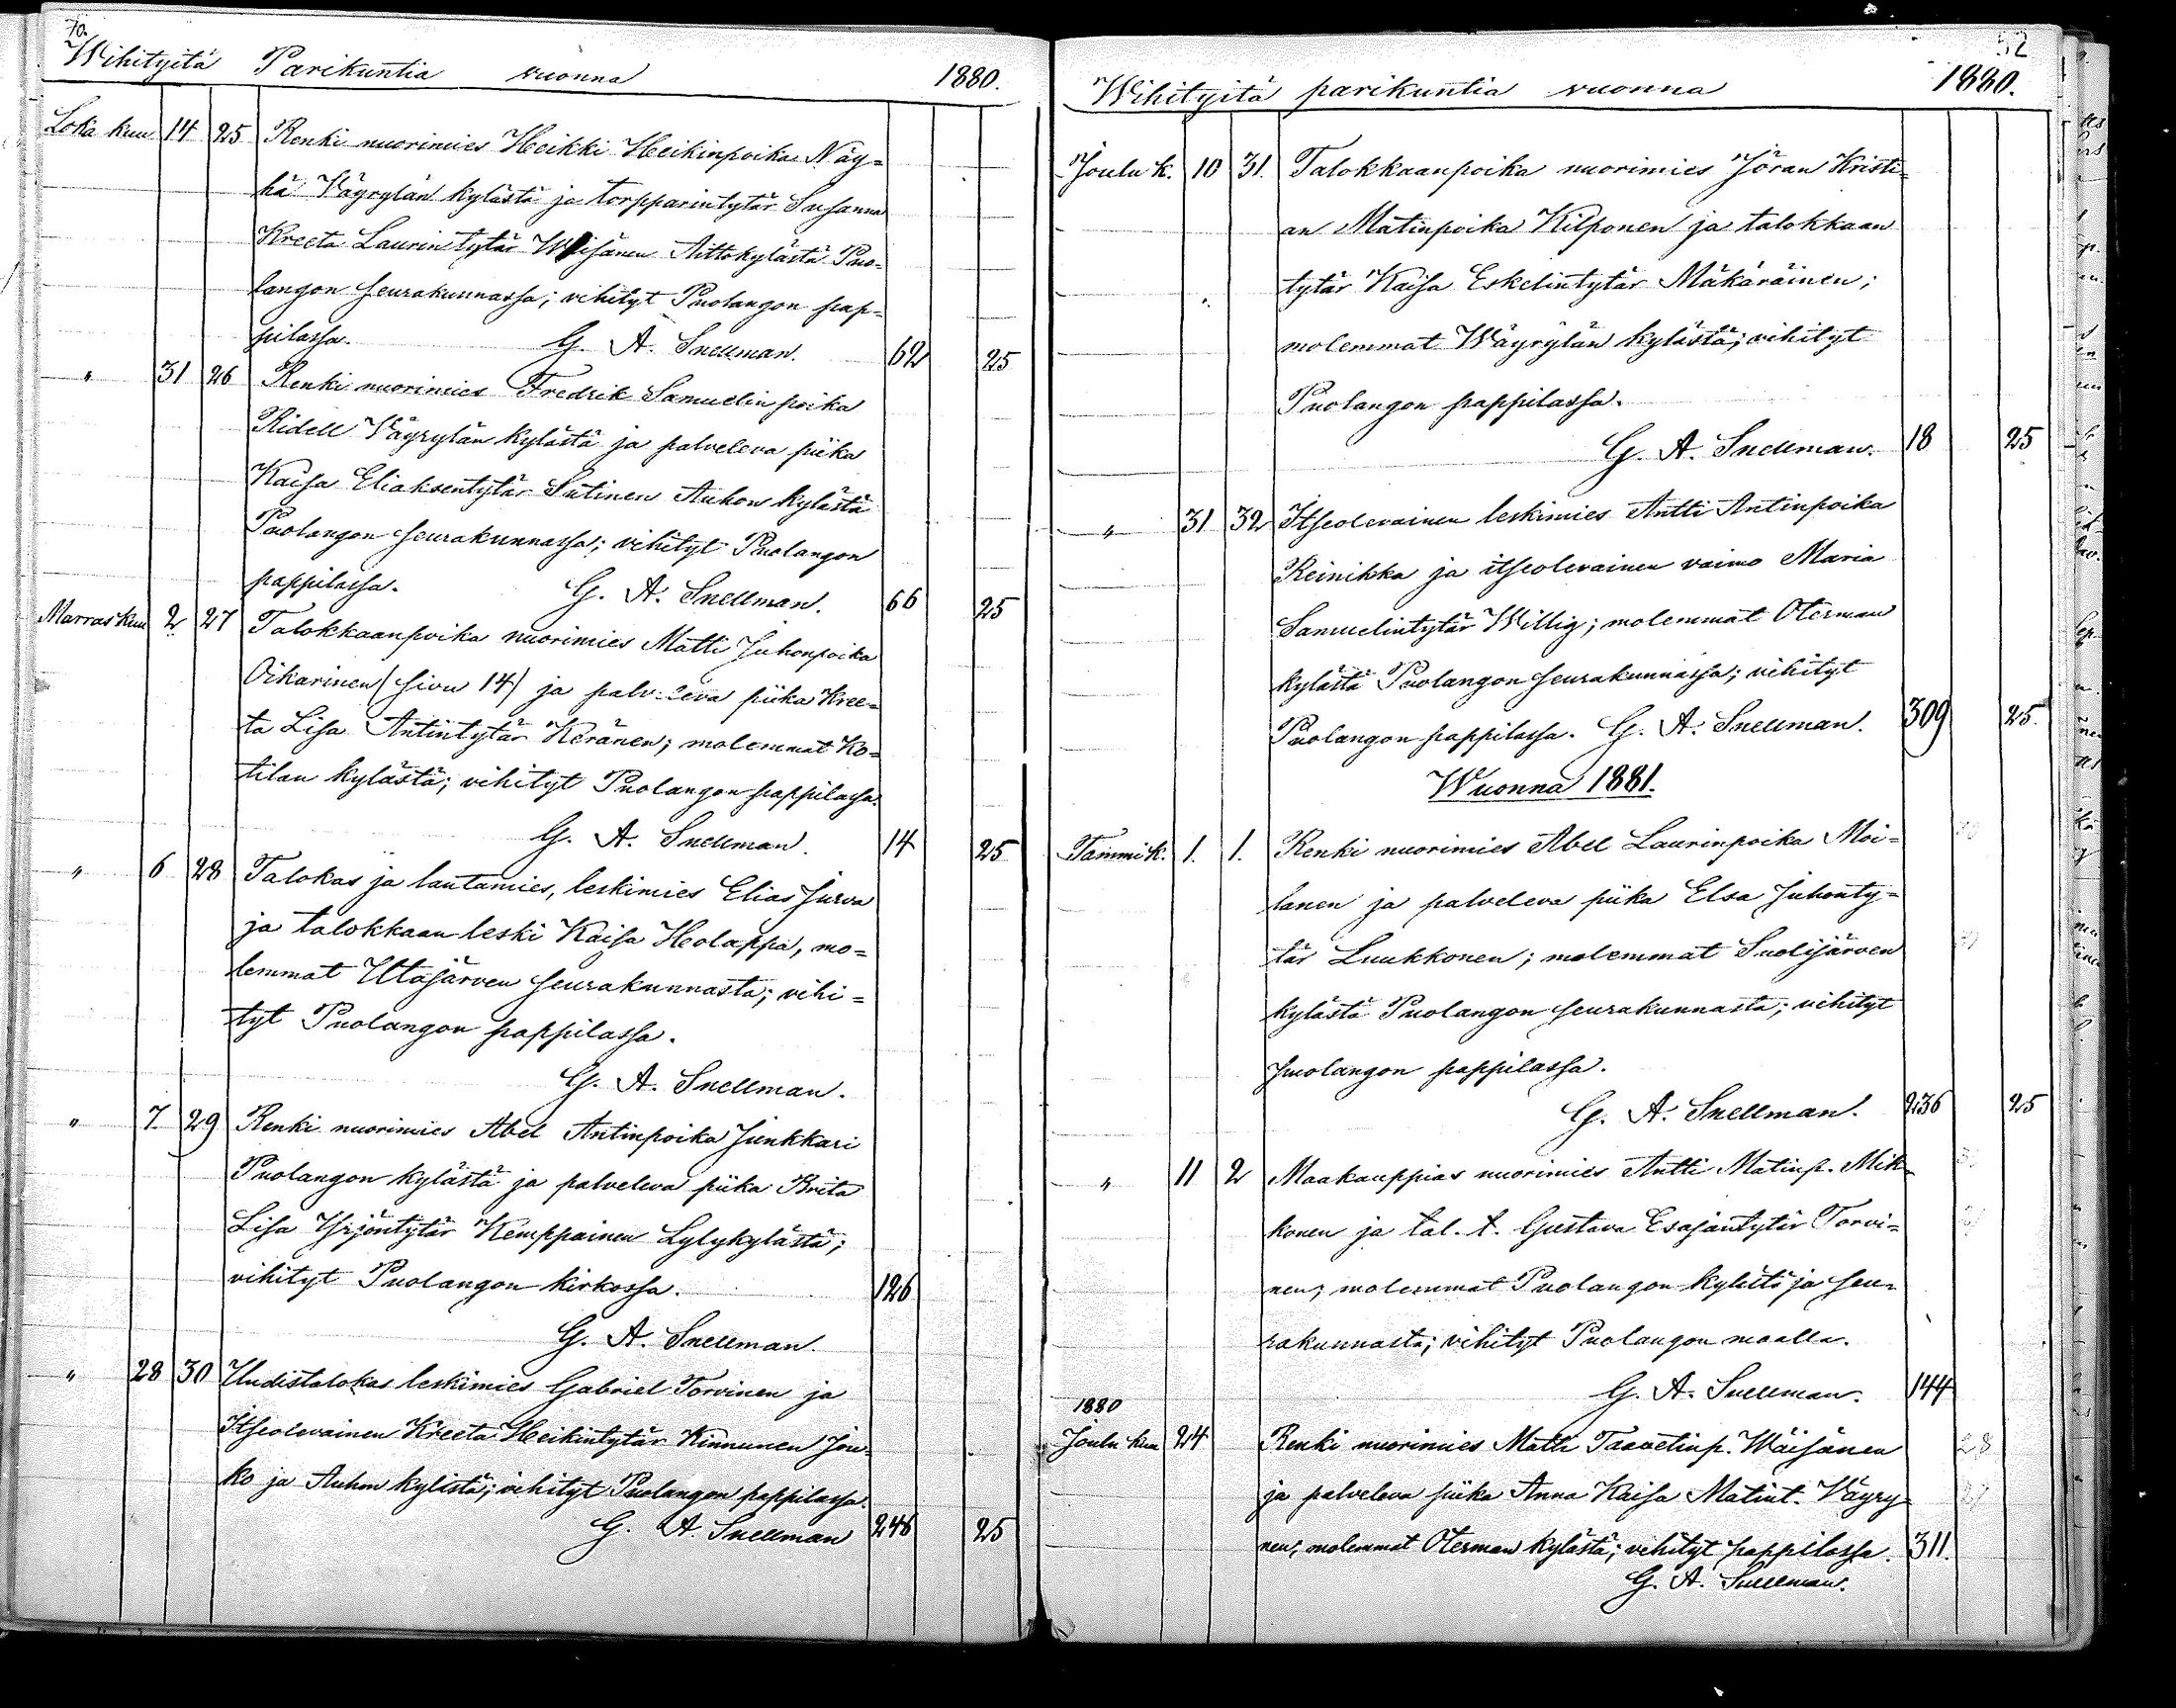 70.
Wihityitä Parikuntia vuonna 1880.
Loka kuu 14 25 Renki nuorimies Heikki Heikinpoika Näy=
hä Väyrylän kylästä ja torpparintytär Susanna
Kreeta Laurin tytär Wäisänen Aittokylästä Puo=
langon seurakunnassa; vihityt Puolangon pap=
pilassa. G. A. Snellman. 62 25
" 31 26 Renki nuorimies Fredrik Samuelin poika
Ridell Väyrylän kylästä ja palveleva piika
Kaisa Eliaksentytär Sutinen Auhon kylästä
Puolangon seurakunnassa; vihityt Puolangon
pappilassa. G. A. Snellman. 66 25
Marras kuu 2 27 Talokkaanpoika nuorimies Matti Juhonpoika
Oikarinen (sivu 14) ja palveleva piika Kree=
ta Lisa Antintytär Keränen; molemmat Ko=
tilan kylästä; vihityt Puolangon pappilassa.
G. A. Snellman. 14 25
" 6 28 Talokas ja lautamies, leskimies Elias Jurva
ja talokkaan leski Kaisa Heolappa, mo=
lemmat Utajärven seurakunnasta; vihi=
tyt Puolangon pappilassa.
G. A. Snellman.
" 7. 29 Renki nuorimies Abel Antinpoika Junkkari
Puolangon kylästä ja palveleva piika Brita
Lisa Yrjöntytär Kemppainen Lylykylästä;
vihityt Puolangon kirkossa. 126
G. A. Snellman.
" 28 30 Uudistalokas leskimies Gabriel Torvinen ja
Itseolevainen Kreeta Heikintytär Kinnunen Jou=
ko ja Auhon kylistä; vihityt Puolangon pappilassa.
G. A. Snellman 246 25
52
Wihityitä parikuntia vuonna 1880.
Joulu k. 10 31. Talokkaanpoika nuorimies Jöran Kristi=
an Matinpoika Kilponen ja talokkaan
tytär Kaisa Eskelintytär Mäkäräinen;
molemmat Wäyrylän kylästä; vihityt
Puolangon pappilassa.
G. A. Snellman. 18 25
" 31 32 Itseolevainen leskimies Antti Antinpoika
Reinikka ja itseolevainen vaimo Maria
Samuelintytär Willig; molemmat Oterman
kylästä Puolangon seurakunnassa; vihityt
Puolangon pappilassa. G. A. Snellman. 309 25.
Wuonna 1881.
Tammi k. 1. 1. Renki nuorimies Abel Laurinpoika Moi=
lanen ja palveleva piika Elsa Juhonty=
tär Luukkonen; molemmat Suolijärven
kylästä Puolangon seurakunnasta; vihityt
Puolangon pappilassa.
G. A. Snellman. 236 25
" 11 2 Maakauppias nuorimies Antti Matinp. Mik=
konen ja tal. t. Gustava Esajantytär Torvi=
nen; molemmat Puolangon kylästä ja seu=
rakunnasta; vihityt Puolangon maalla.
G. A. Snellman. 144
1880
Joulu kuu 24 Renki nuorimies Matti Taavetinp. Wäisänen
ja palveleva piika Anna Kaisa Matint. Väyry=
nen; molemmat Oterman kylästä; vihityt pappilassa. 311.
G. A. Snellman.